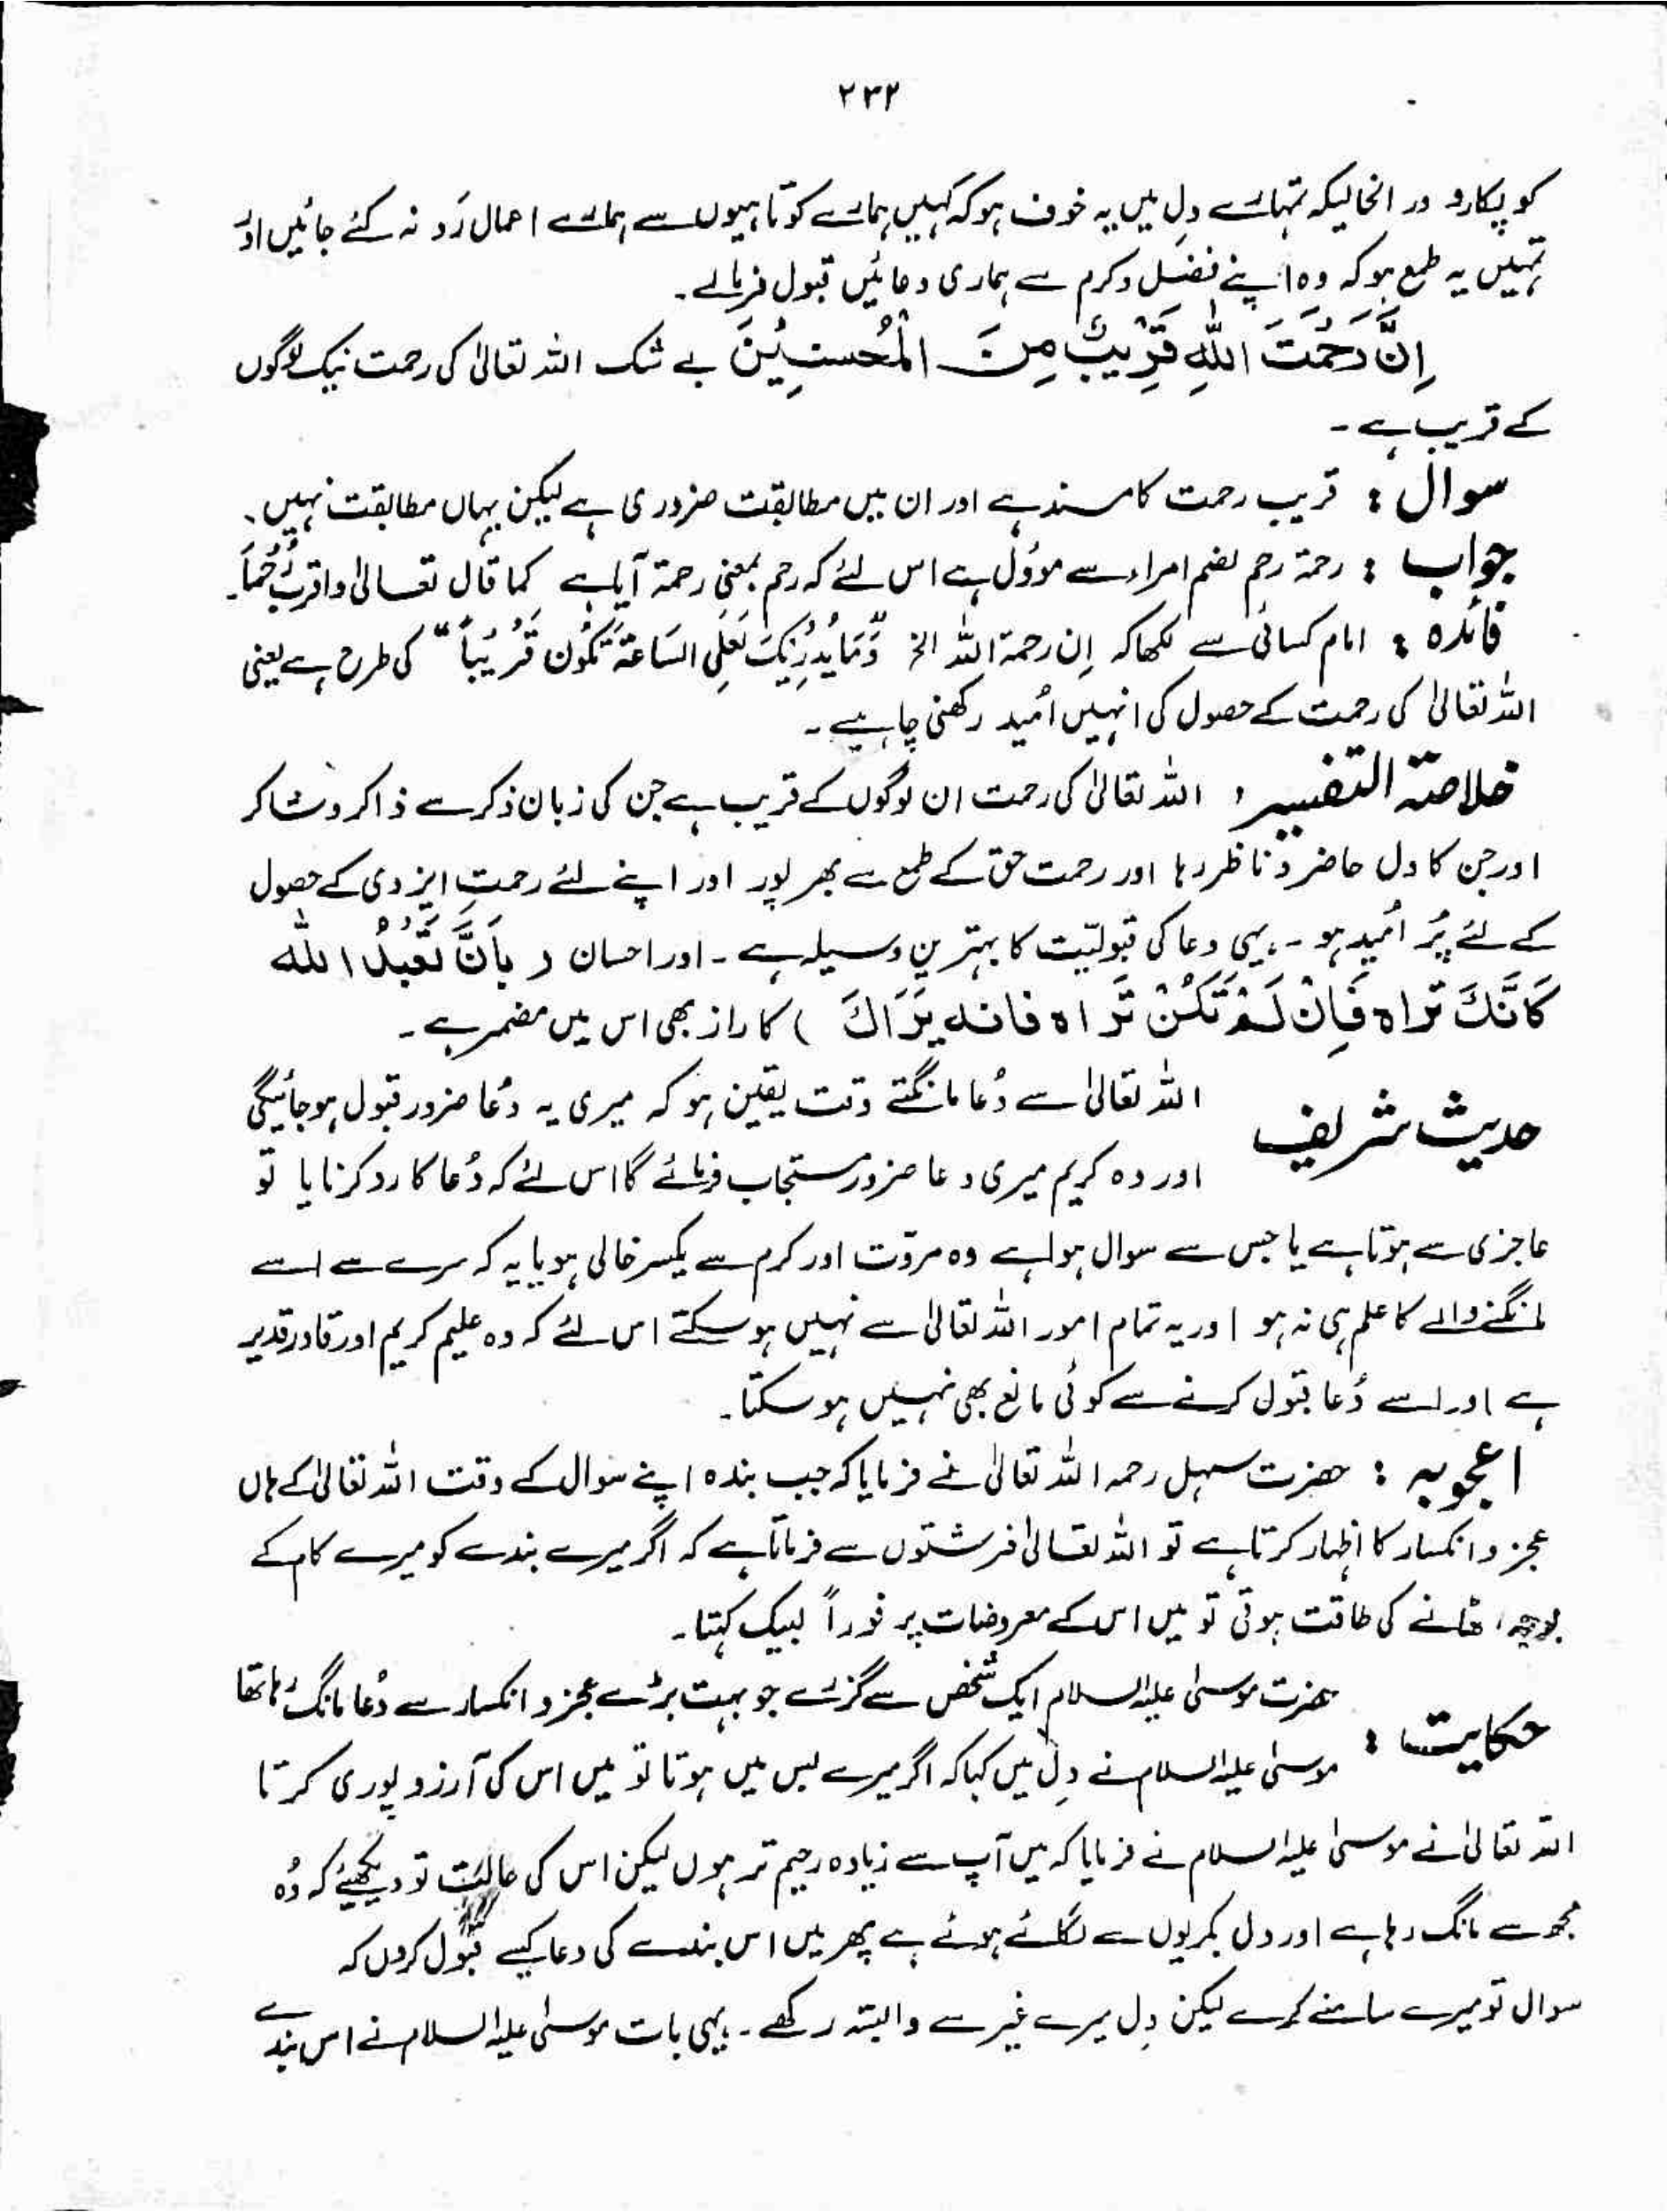 ۲۳۲
کو پکارو در انحالیکہ تمہارے دل میں یہ خوف ہو کہ کہیں ہمارے کوتاہیوں سے ہمارے اعمال رَد نہ کئے جائیں اور
تمہیں یہ طمع ہو کہ وہ اپنے فضل وکرم سے ہماری دعائیں قبول فرمالے۔
اِنَّ رَحْمَتَ اللّٰہِ قَرِیْبٌ مِنَ الْمُحْسِنِیْنَ بے شک اللہ تعالیٰ کی رحمت نیک لوگوں
کے قریب ہے۔
سوال : قریب رحمت کا مسند ہے اور ان میں مطابقت ضروری ہے لیکن یہاں مطابقت نہیں۔
جواب : رحمۃ رحم بضم امراء سے موؤل ہے اس لئے کہ رحم بمعنی رحمۃ آیا ہے کما قال تعالیٰ واقرب رُحُماً۔
فائدہ : امام کسائی سے لکھا کہ اِن رحمۃ اللہ الخ وَّمَا یُدْرِیْکَ لَعَلَّ السَاعَۃَ تَکُوْن قَرْیْباً“ کی طرح ہے یعنی
اللہ تعالیٰ کی رحمت کے حصول کی انہیں اُمید رکھنی چاہیے۔
خلاصۃ التفسیر ، اللہ تعالیٰ کی رحمت ان لوگوں کے قریب ہے جن کی زبان ذکر سے ذاکر وشاکر
اور جن کا دل حاضر و ناظر رہا اور رحمت حق کے طمع سے بھر پور اور اپنے لئے رحمتِ ایزدی کے حصول
کے لئے پُر اُمید ہو۔ یہی دعا کی قبولیّت کا بہترین وسیلہ ہے۔ اور احسان ( بِاَنَّ تَعْبُدُ اللّٰہ
کَانَّکَ تراہ فَاِنْ لَمْ تَکُنْ تَرَاہ فانہ یَرَاکَ ) کا راز بھی اس میں مضمر ہے۔
حدیث شریف اللہ تعالیٰ سے دُعا مانگتے وقت یقین ہو کہ میری یہ دُعا ضرور قبول ہو جائیگی
اور وہ کریم میری دعا ضرور مستجاب فرمائے گا اس لئے کہ دُعا کا رد کرنا یا تو
عاجزی سے ہوتا ہے یا جس سے سوال ہوا ہے وہ مروّت اور کرم سے یکسر خالی ہو یا یہ کہ سرے سے اسے
مانگنے والے کا علم ہی نہ ہو اور یہ تمام امور اللہ تعالیٰ سے نہیں ہو سکتے اس لئے کہ وہ علیم کریم اور قادر قدیر
ہے اور اسے دُعا قبول کرنے سے کوئی مانع بھی نہیں ہو سکتا۔
اعجوبہ : حضرت سہل رحمہ اللہ تعالیٰ نے فرمایا کہ جب بندہ اپنے سوال کے وقت اللہ تعالیٰ کے ہاں
عجز وانکسار کا اظہار کرتا ہے تو اللہ تعالیٰ فرشتوں سے فرماتا ہے کہ اگر میرے بندے کو میرے کام کے
بوجھ اٹھانے کی طاقت ہوتی تو میں اس کے معروضات پر فوراً لبیک کہتا۔
حکایت : حضرت موسیٰ علیہ السلام ایک شخص سے گزرے جو بہت بڑے عجز وانکسار سے دُعا مانگ رہا تھا
موسیٰ علیہ السلام نے دِل میں کہا کہ اگر میرے بس میں ہوتا تو میں اس کی آرزو پوری کرتا
اللہ تعالیٰ نے موسیٰ علیہ السلام نے فرمایا کہ میں آپ سے زیادہ رحیم تر ہوں لیکن اس کی حالت تو دیکھئے کہ وُہ
مجھ سے مانگ رہا ہے اور دل بکریوں سے لگائے ہوئے ہے پھر میں اس بندے کی دعا کیسے قبول کروں کہ
سوال تو میرے سامنے کرے لیکن دِل میرے غیر سے وابستہ رکھے۔ یہی بات موسیٰ علیہ السلام نے اس بندے